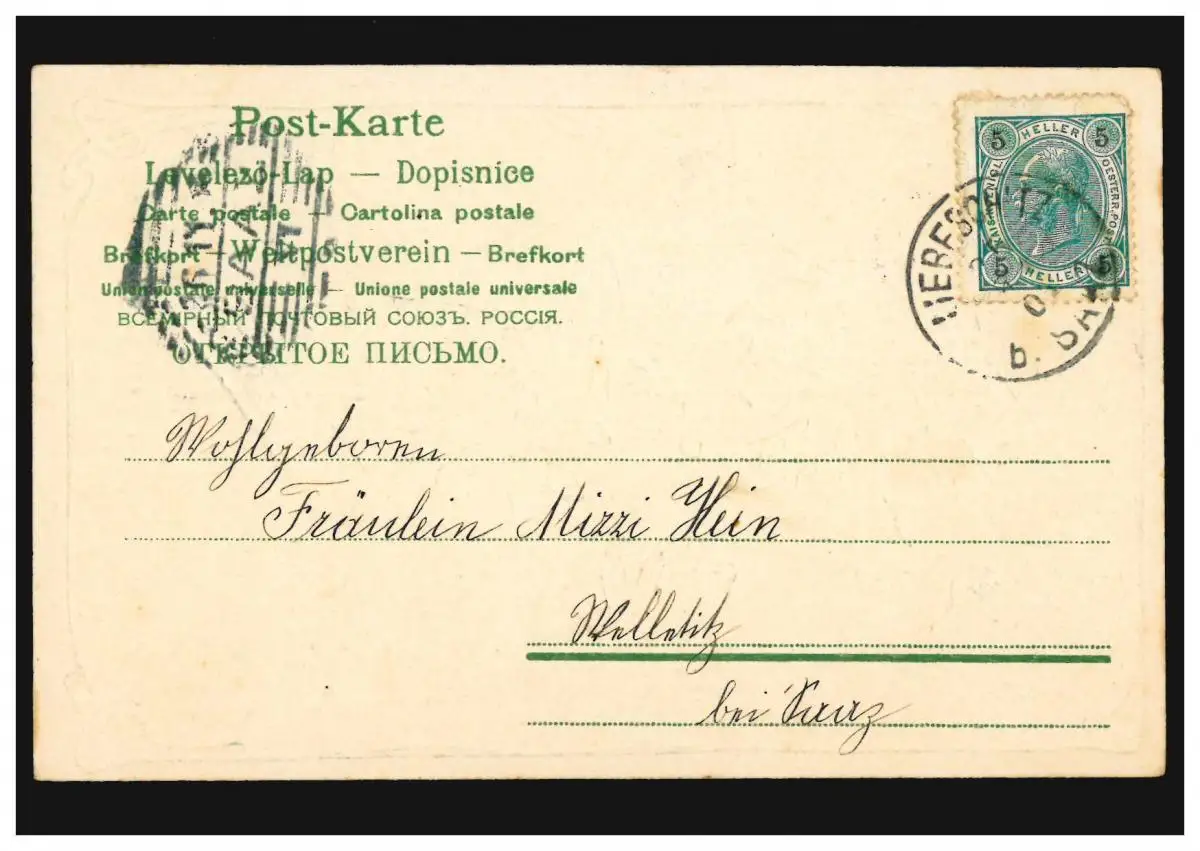 Post-Karte
Levelező-Lap — Dopisnice
Carte postale — Cartolina postale
Brefkort — Weltpostverein — Brefkort
Union postale universelle — Unione postale universale
ВСЕМІРНЫЙ ПОЧТОВЫЙ СОЮЗЪ. РОССІЯ.
ОТКРЫТОЕ ПИСЬМО.
5 HELLER 5
KAIS. KÖNIGL. OESTERR. POST
5 HELLER 5
b. SAAZ
SAAZ
Wohlgeboren
Fräulein Mizzi Hein
Welletitz
bei Saaz